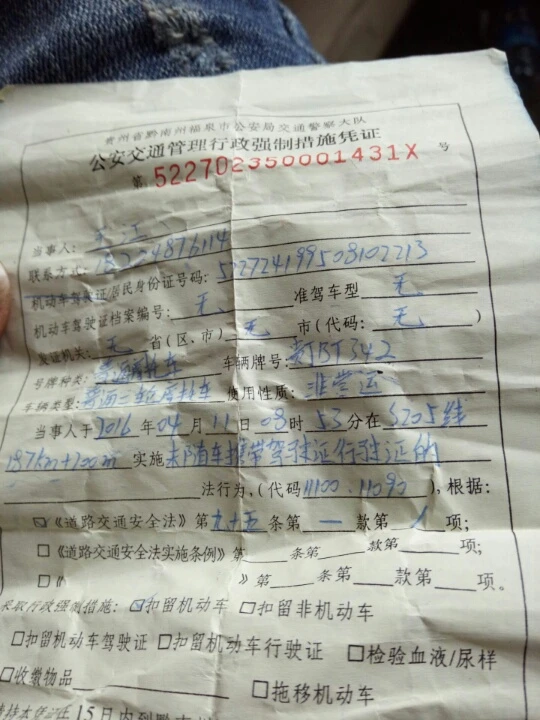 贵州省黔南州福泉市公安局交通警察大队
公安交通管理行政强制措施凭证
第 522702350001431X 号
当事人: 江
联系方式: 18224876114
机动车驾驶证/居民身份证号码: 522724199508102213
机动车驾驶证档案编号: 无 准驾车型 无
发证机关: 无 省(区、市) 无 市(代码: 无 )
号牌种类: 普通摩托车 车辆牌号: 贵JBT342
车辆类型: 普通二轮摩托车 使用性质: 非营运
当事人于2016年04月11日08时53分在S205线
187km+200m 实施未随车携带驾驶证行驶证的
法行为,(代码11100、11090),根据:
☑《道路交通安全法》第九十五条第一款第 项;
□《道路交通安全法实施条例》第 条第 款第 项;
□《 》第 条第 款第 项。
采取行政强制措施: ☑扣留机动车 □扣留非机动车
□扣留机动车驾驶证 □扣留机动车行驶证 □检验血液/尿样
□收缴物品 □拖移机动车
持本凭证在15日内到黔南州